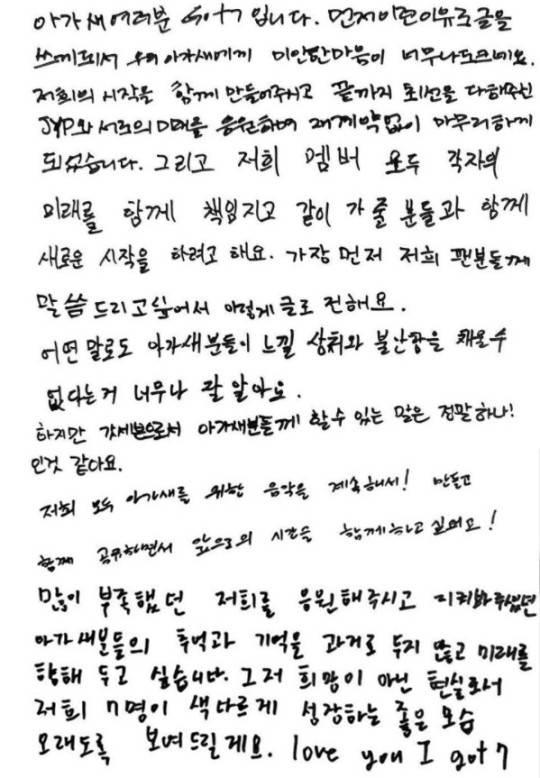 아가새 여러분 GOT7 입니다. 먼저 이런 이유로 글을
쓰게 되서 우리 아가새에게 미안한 마음이 너무나도 크네요.
저희의 시작을 함께 만들어주시고 끝까지 최선을 다해주신
JYP와 서로의 미래를 응원하며 재계약없이 마무리하게
되었습니다. 그리고 저희 멤버 모두 각자의
미래를 함께 책임지고 같이 가 줄 분들과 함께
새로운 시작을 하려고 해요. 가장 먼저 저희 팬분들께
말씀 드리고싶어서 이렇게 글로 전해요.
어떤 말로도 아가새분들이 느낄 상처와 불안감을 채울수
없다는거 너무나 잘 알아요.
하지만 갓세븐으로서 아가새분들께 할수 있는 말은 정말하나!
인것 같아요.
저희 모두 아가새를 위한 음악을 계속해서! 만들고
함께 공유하면서 앞으로의 시간을 함께하고싶어요!
많이 부족했던 저희를 응원해주시고 지켜봐주셨던
아가새분들의 추억과 기억을 과거로 두지 않고 미래를
향해 두고 싶습니다. 그저 희망이 아닌 현실로서
저희 7명이 색다르게 성장하는 좋은 모습
오래도록 보여드릴게요. love you I got 7